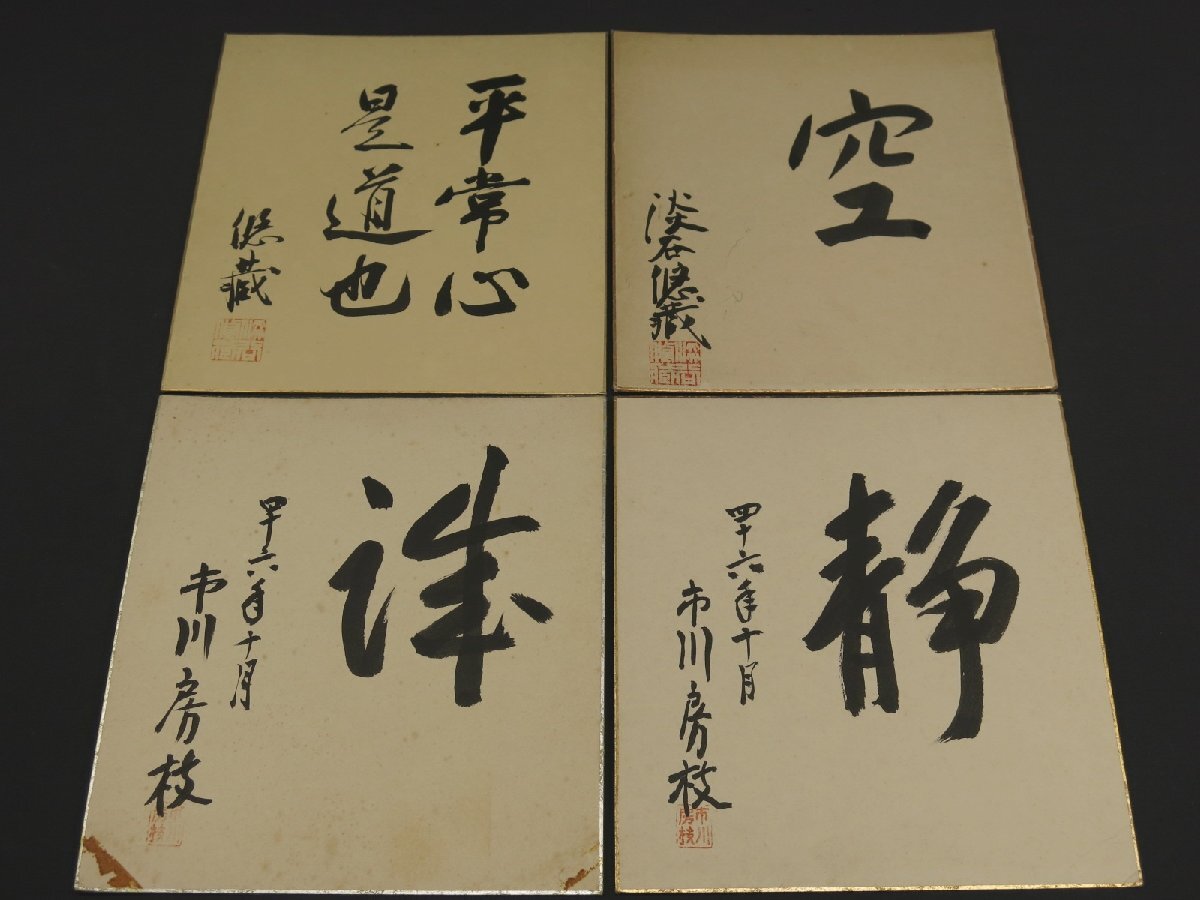 平常心
是道也
悠蔵
空
淡谷悠蔵
誠
四十六年十月
市川房枝
静
四十六年十月
市川房枝
市川
房枝